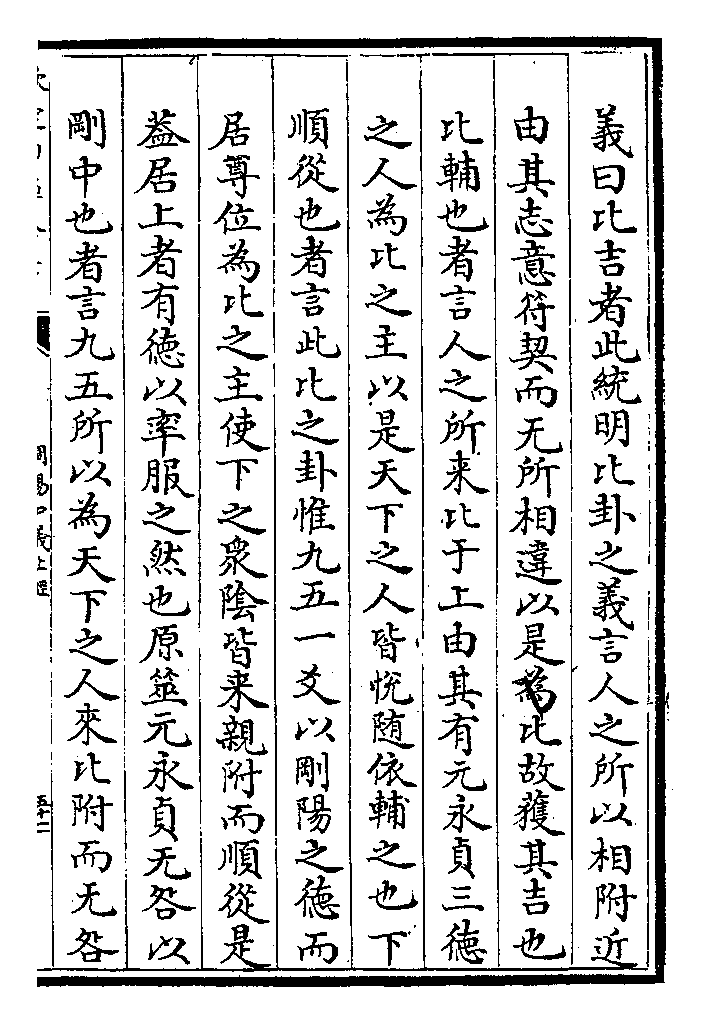 義曰比吉者此統明比卦之義言人之所以相附近
由其志意符契而无所相違以是為比故獲其吉也
比輔也者言人之所来比于上由其有元永貞三德
之人為比之主以是天下之人皆悅随依輔之也下
順從也者言此比之卦惟九五一爻以剛陽之德而
居尊位為比之主使下之衆陰皆来親附而順從是
葢居上者有德以率服之然也原筮元永貞无咎以
剛中也者言九五所以為天下之人來比附而无咎
周易口義上經